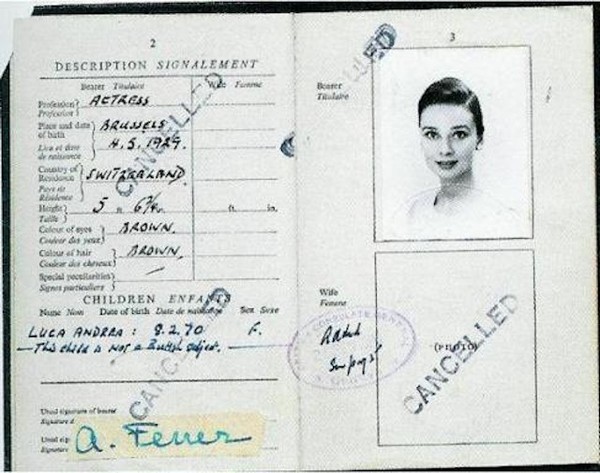 2
DESCRIPTION SIGNALEMENT
Bearer Titulaire
Wife Femme
Profession
Profession
ACTRESS
Place and date
of birth
Lieu et date
de naissance
BRUSSELS
4.5.1929.
Country of
Residence
Pays de
Résidence
SWITZERLAND
Height
Taille
5
ft. in.
Colour of eyes
Couleur des yeux
BROWN.
Colour of hair
Couleur des cheveux
BROWN.
Special peculiarities
Signes particuliers
CANCELLED
CHILDREN ENFANTS
Name Nom Date of birth Date de naissance Sex Sexe
LUCA ANDREA: 8.2.70 F.
This child is not a British subject.
CANCELLED
Usual signature of bearer
Signature d
Usual sig
Signature
A. Ferrer
3
Bearer
Titulaire
Wife
Femme
(PHOTO)
CANCELLED